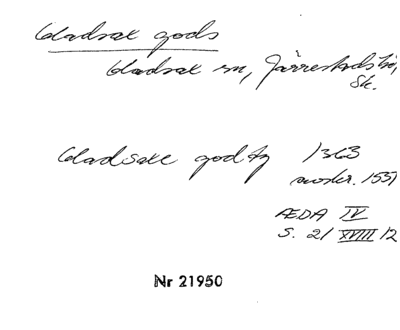 Gladsax gods
Gladsax sn, Järrestads hd,
Sk.
Gladsaxe godtz 1363
avskr. 1551
ÆDA IV
S. 21 XVIII 12
Nr 21950